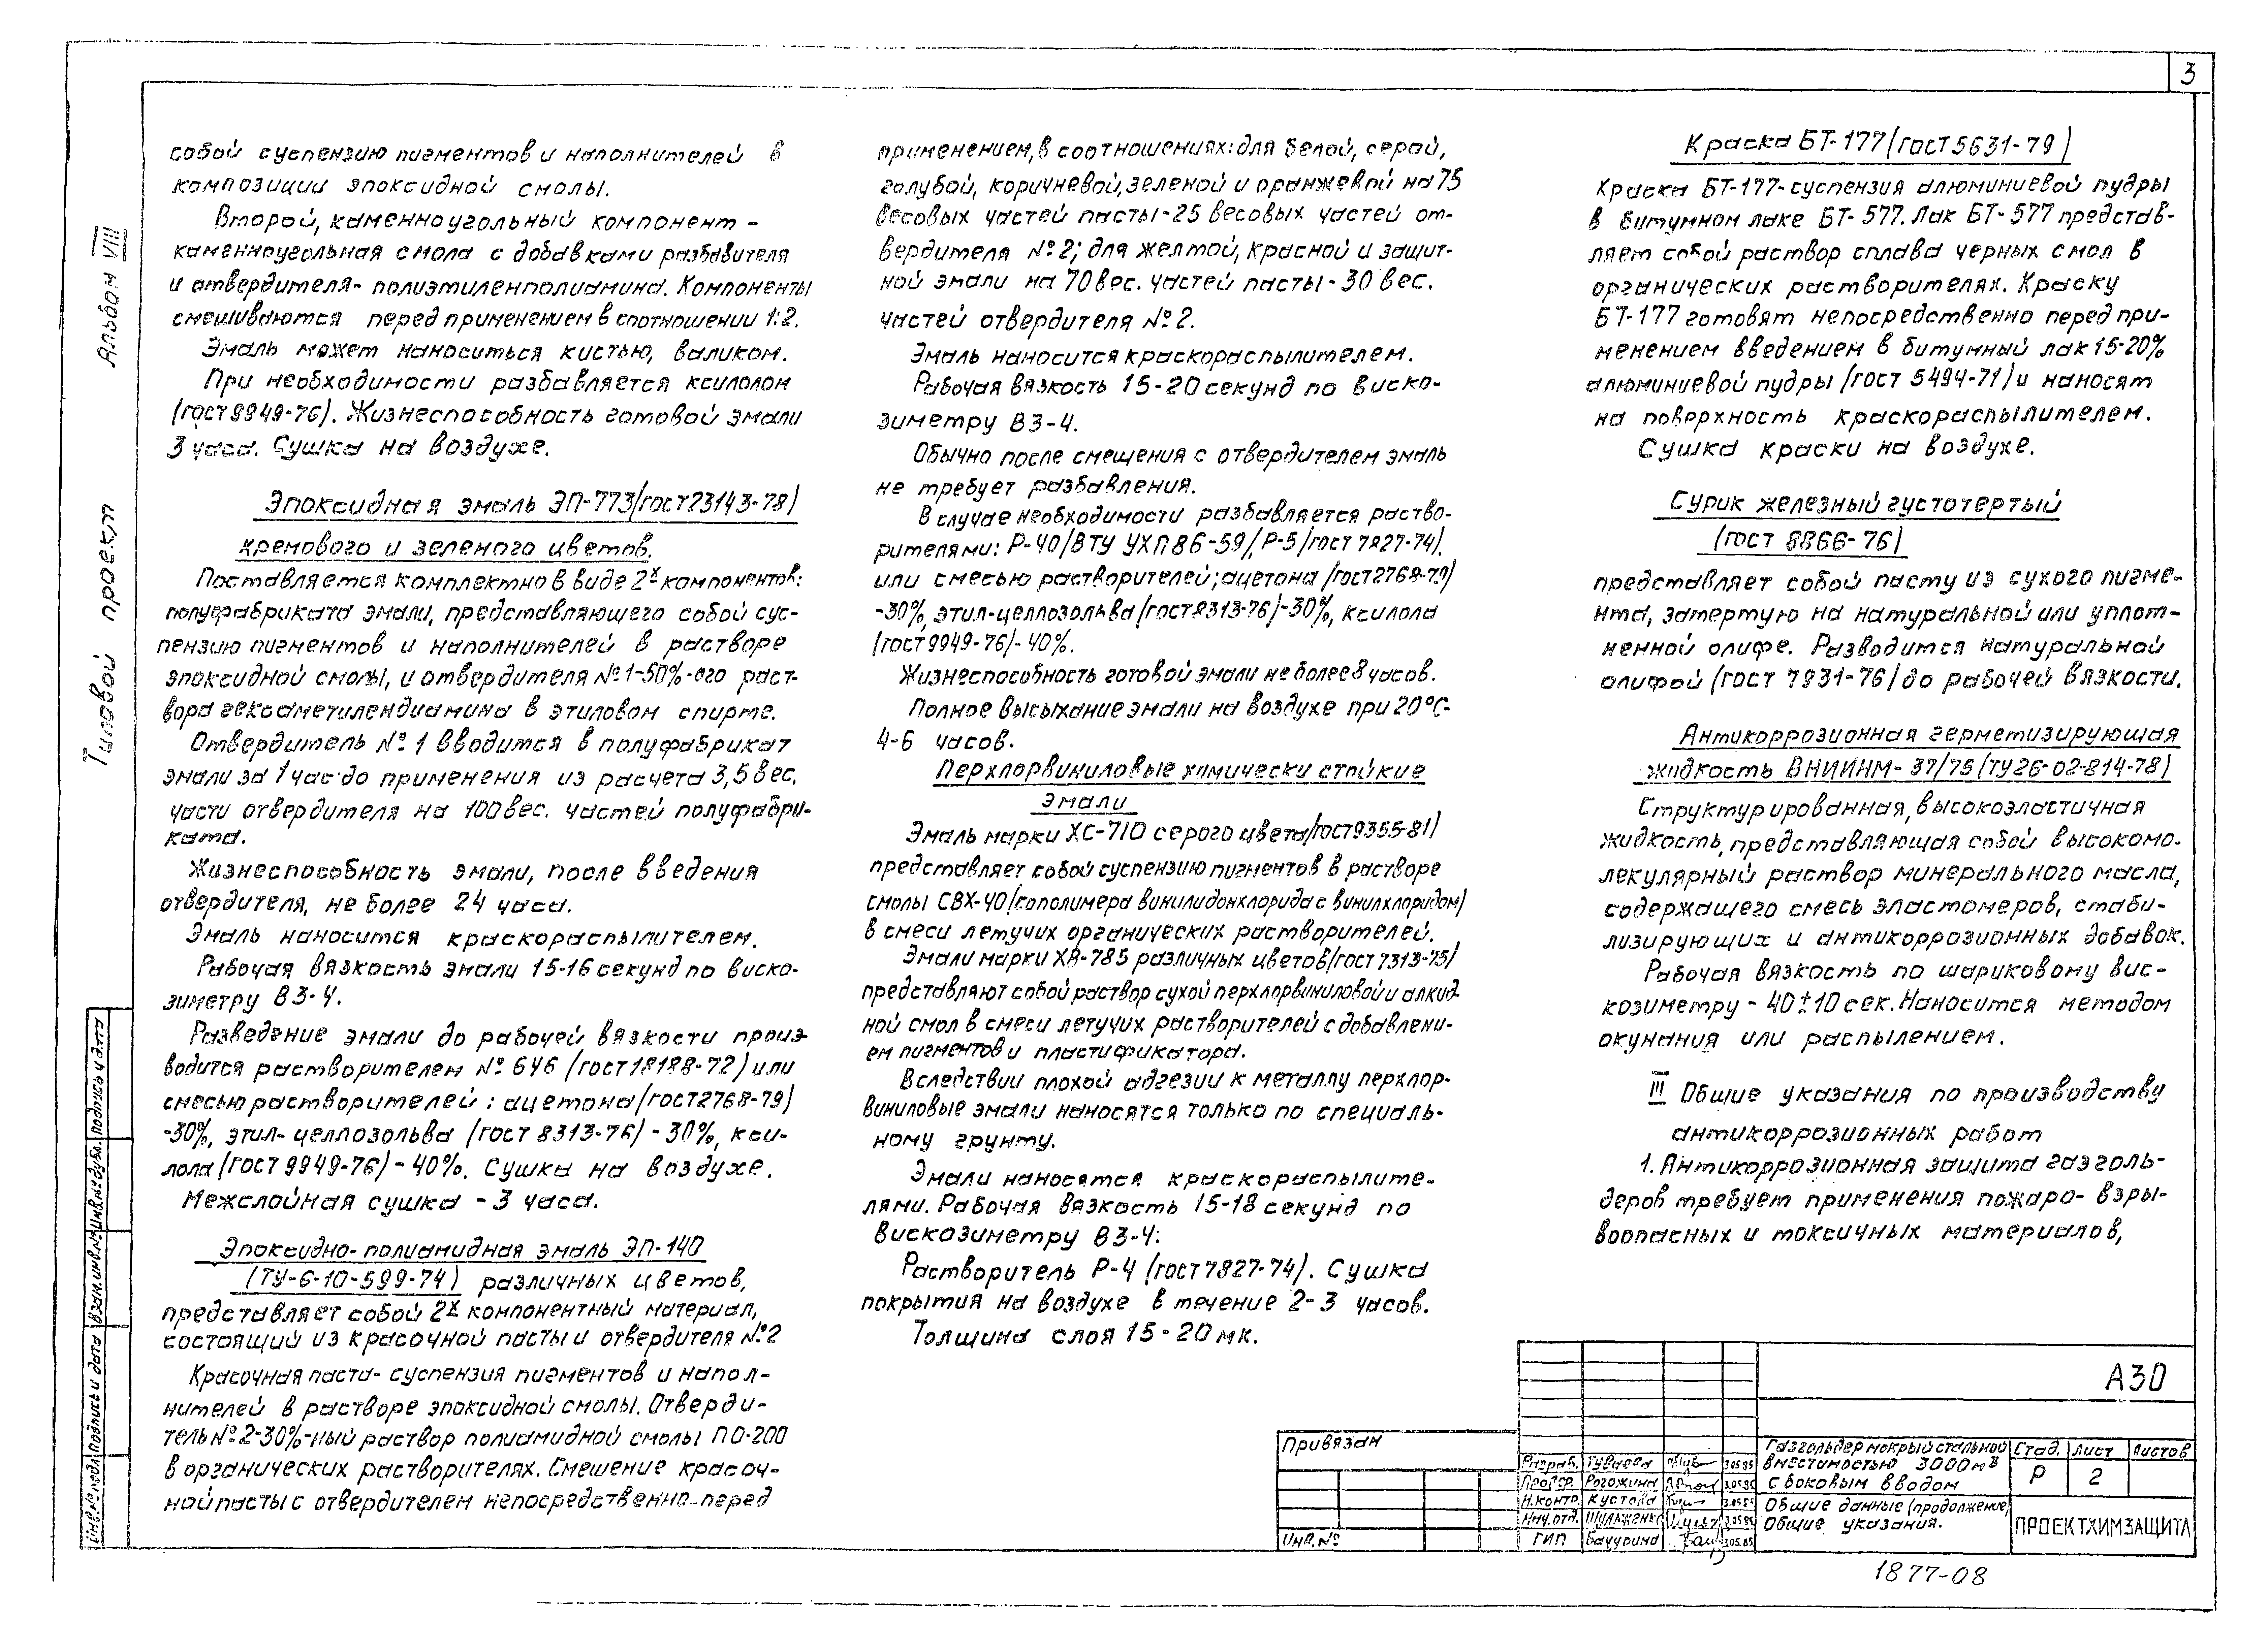 3
собой суспензию пигментов и наполнителей в
композиции эпоксидной смолы.
Второй, каменноугольный компонент -
каменноугольная смола с добавками разбавителя
и отвердителя- полиэтиленполиамина. Компоненты
смешиваются перед применением в соотношении 1:2.
Эмаль может наноситься кистью, валиком.
При необходимости разбавляется ксилолом
(гост 9949-76). Жизнеспособность готовой эмали
3 часа. Сушка на воздухе.
Эпоксидная эмаль ЭП-773/гост 23143-78)
кремового и зеленого цветов.
Поставляется комплектно в виде 2х компонентов:
полуфабриката эмали, представляющего собой сус-
пензию пигментов и наполнителей в растворе
эпоксидной смолы, и отвердителя №1-50%-ого раст-
вора гексаметилендиамина в этиловом спирте.
Отвердитель №1 вводится в полуфабрикат
эмали за 1 час до применения из расчета 3,5 вес.
части отвердителя на 100 вес. частей полуфабри-
ката.
Жизнеспособность эмали, после введения
отвердителя, не более 24 часа.
Эмаль наносится краскораспылителем.
Рабочая вязкость эмали 15-16 секунд по виско-
зиметру ВЗ-4.
Разведение эмали до рабочей вязкости произ-
водится растворителем № 646 (гост 18188-72) или
смесью растворителей: ацетона/гост 2768-79)
-30%, этил-целлозольва (гост 8313-76) - 30%, кси-
лола (гост 9949-76) - 40%. Сушка на воздухе.
Межслойная сушка - 3 часа.
Эпоксидно-полиамидная эмаль ЭП-140
(ТУ-6-10-599-74) различных цветов,
представляет собой 2х компонентный материал,
состоящий из красочной пасты и отвердителя №2
Красочная паста- суспензия пигментов и напол-
нителей в растворе эпоксидной смолы. Отверди-
тель №2-30%-ный раствор полиамидной смолы ПО-200
в органических растворителях. Смешение красоч-
ной пасты с отвердителем непосредственно перед
применением, в соотношениях: для белой, серой,
голубой, коричневой, зеленой и оранжевой на 75
весовых частей пасты-25 весовых частей от-
вердителя №2; для желтой, красной и защит-
ной эмали на 70 вес. частей пасты - 30 вес.
частей отвердителя №2.
Эмаль наносится краскораспылителем.
Рабочая вязкость 15-20 секунд по виско-
зиметру ВЗ-4.
Обычно после смещения с отвердителем эмаль
не требует разбавления.
В случае необходимости разбавляется раство-
рителями: Р-40/ВТУ УХП 86-59/, Р-5/гост 7827-74).
или смесью растворителей; ацетона /гост 2768-79)
-30%, этил-целлозольва (гост 8313-76)-30%, ксилола
(гост 9949-76)- 40%.
Жизнеспособность готовой эмали не более 8 часов.
Полное высыхание эмали на воздухе при 20°С-
4-6 часов.
Перхлорвиниловые химически стойкие
эмали
Эмаль марки ХС-710 серого цвета/гост 9355-81)
представляет собой суспензию пигментов в растворе
смолы СВХ-40/сополимера винилиденхлорида с винилхлоридом)
в смеси летучих органических растворителей.
Эмали марки ХВ-785 различных цветов/гост 7313-75/
представляют собой раствор сухой перхлорвиниловой и алкид-
ной смол в смеси летучих растворителей с добавлени-
ем пигментов и пластификатора.
Вследствии плохой адгезии к металлу перхлор-
виниловые эмали наносятся только по специаль-
ному грунту.
Эмали наносятся краскораспылите-
лями. Рабочая вязкость 15-18 секунд по
вискозиметру ВЗ-4.
Растворитель Р-4 (гост 7827-74). Сушка
покрытия на воздухе в течение 2-3 часов.
Толщина слоя 15-20 мк.
Краска БТ-177 (гост 5631-79)
Краска БТ-177-суспензия алюминиевой пудры
в битумном лаке БТ-577. Лак БТ-577 представ-
ляет собой раствор сплава черных смол в
органических растворителях. Краску
БТ-177 готовят непосредственно перед при-
менением введением в битумный лак 15-20%
алюминиевой пудры /гост 5494-71) и наносят
на поверхность краскораспылителем.
Сушка краски на воздухе.
Сурик железный густотертый
(гост 8866-76)
представляет собой пасту из сухого пигме-
нта, затертую на натуральной или уплот-
ненной олифе. Разводится натуральной
олифой (гост 7931-76) до рабочей вязкости.
Антикоррозионная герметизирующая
жидкость ВНИИНМ-37/75 (ТУ26-02-814-78)
Структурированная, высокоэластичная
жидкость, представляющая собой высокомо-
лекулярный раствор минерального масла,
содержащего смесь эластомеров, стаби-
лизирующих и антикоррозионных добавок.
Рабочая вязкость по шариковому вис-
козиметру - 40±10 сек. Наносится методом
окунания или распылением.
III Общие указания по производству
антикоррозионных работ
1. Антикоррозионная защита газголь-
деров требует применения пожаро- взры-
воопасных и токсичных материалов,
Альбом VIII
Типовой проект
Инв.№подл. Подпись и дата Взам.инв.№ Инв.№дубл. Подпись и дата
Привязан
Инв.№
Разраб. Гуваева 3.05.85
Провер. Рогожина 3.05.85
Н.контр. Кустова 3.05.85
Нач.отд. Шульженко 3.05.85
ГИП Бачурина 3.05.85
А30
Газгольдер мокрый стальной
вместимостью 3000м3
с боковым вводом
Стад. Лист Листов
Р 2
Общие данные (продолжение)
Общие указания.
ПРОЕКТХИМЗАЩИТА
1877-08